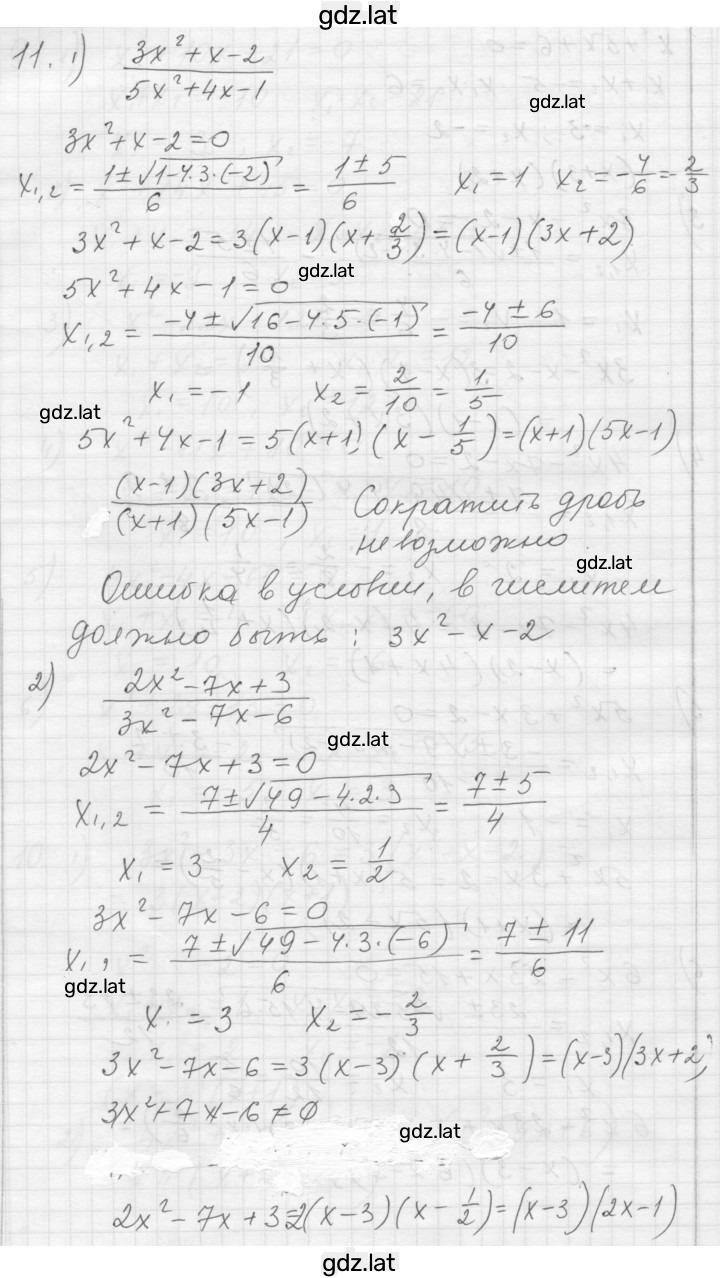 gdz.lat
11. 1) (3x²+x-2)/(5x²+4x-1)
gdz.lat
3x²+x-2=0
x₁,₂ = (1±√(1-4·3·(-2)))/6 = (1±5)/6 x₁=1 x₂=-4/6=2/3
3x²+x-2=3(x-1)(x+2/3)=(x-1)(3x+2)
gdz.lat
5x²+4x-1=0
x₁,₂ = (-4±√(16-4·5·(-1)))/10 = (-4±6)/10
x₁=-1 x₂=2/10=1/5
gdz.lat
5x²+4x-1=5(x+1)(x-1/5)=(x+1)(5x-1)
((x-1)(3x+2))/((x+1)(5x-1)) Сократить дробь
невозможно
gdz.lat
Ошибка в условии, в числителе
должно быть: 3x²-x-2
2) (2x²-7x+3)/(3x²-7x-6)
gdz.lat
2x²-7x+3=0
x₁,₂ = (7±√(49-4·2·3))/4 = (7±5)/4
x₁=3 x₂=1/2
3x²-7x-6=0
x₁, = (7±√(49-4·3·(-6)))/6 = (7±11)/6
gdz.lat
x₁=3 x₂=-2/3
3x²-7x-6=3(x-3)(x+2/3)=(x-3)(3x+2)
3x²+7x-6=0
gdz.lat
2x²-7x+3=2(x-3)(x-1/2)=(x-3)(2x-1)
gdz.lat